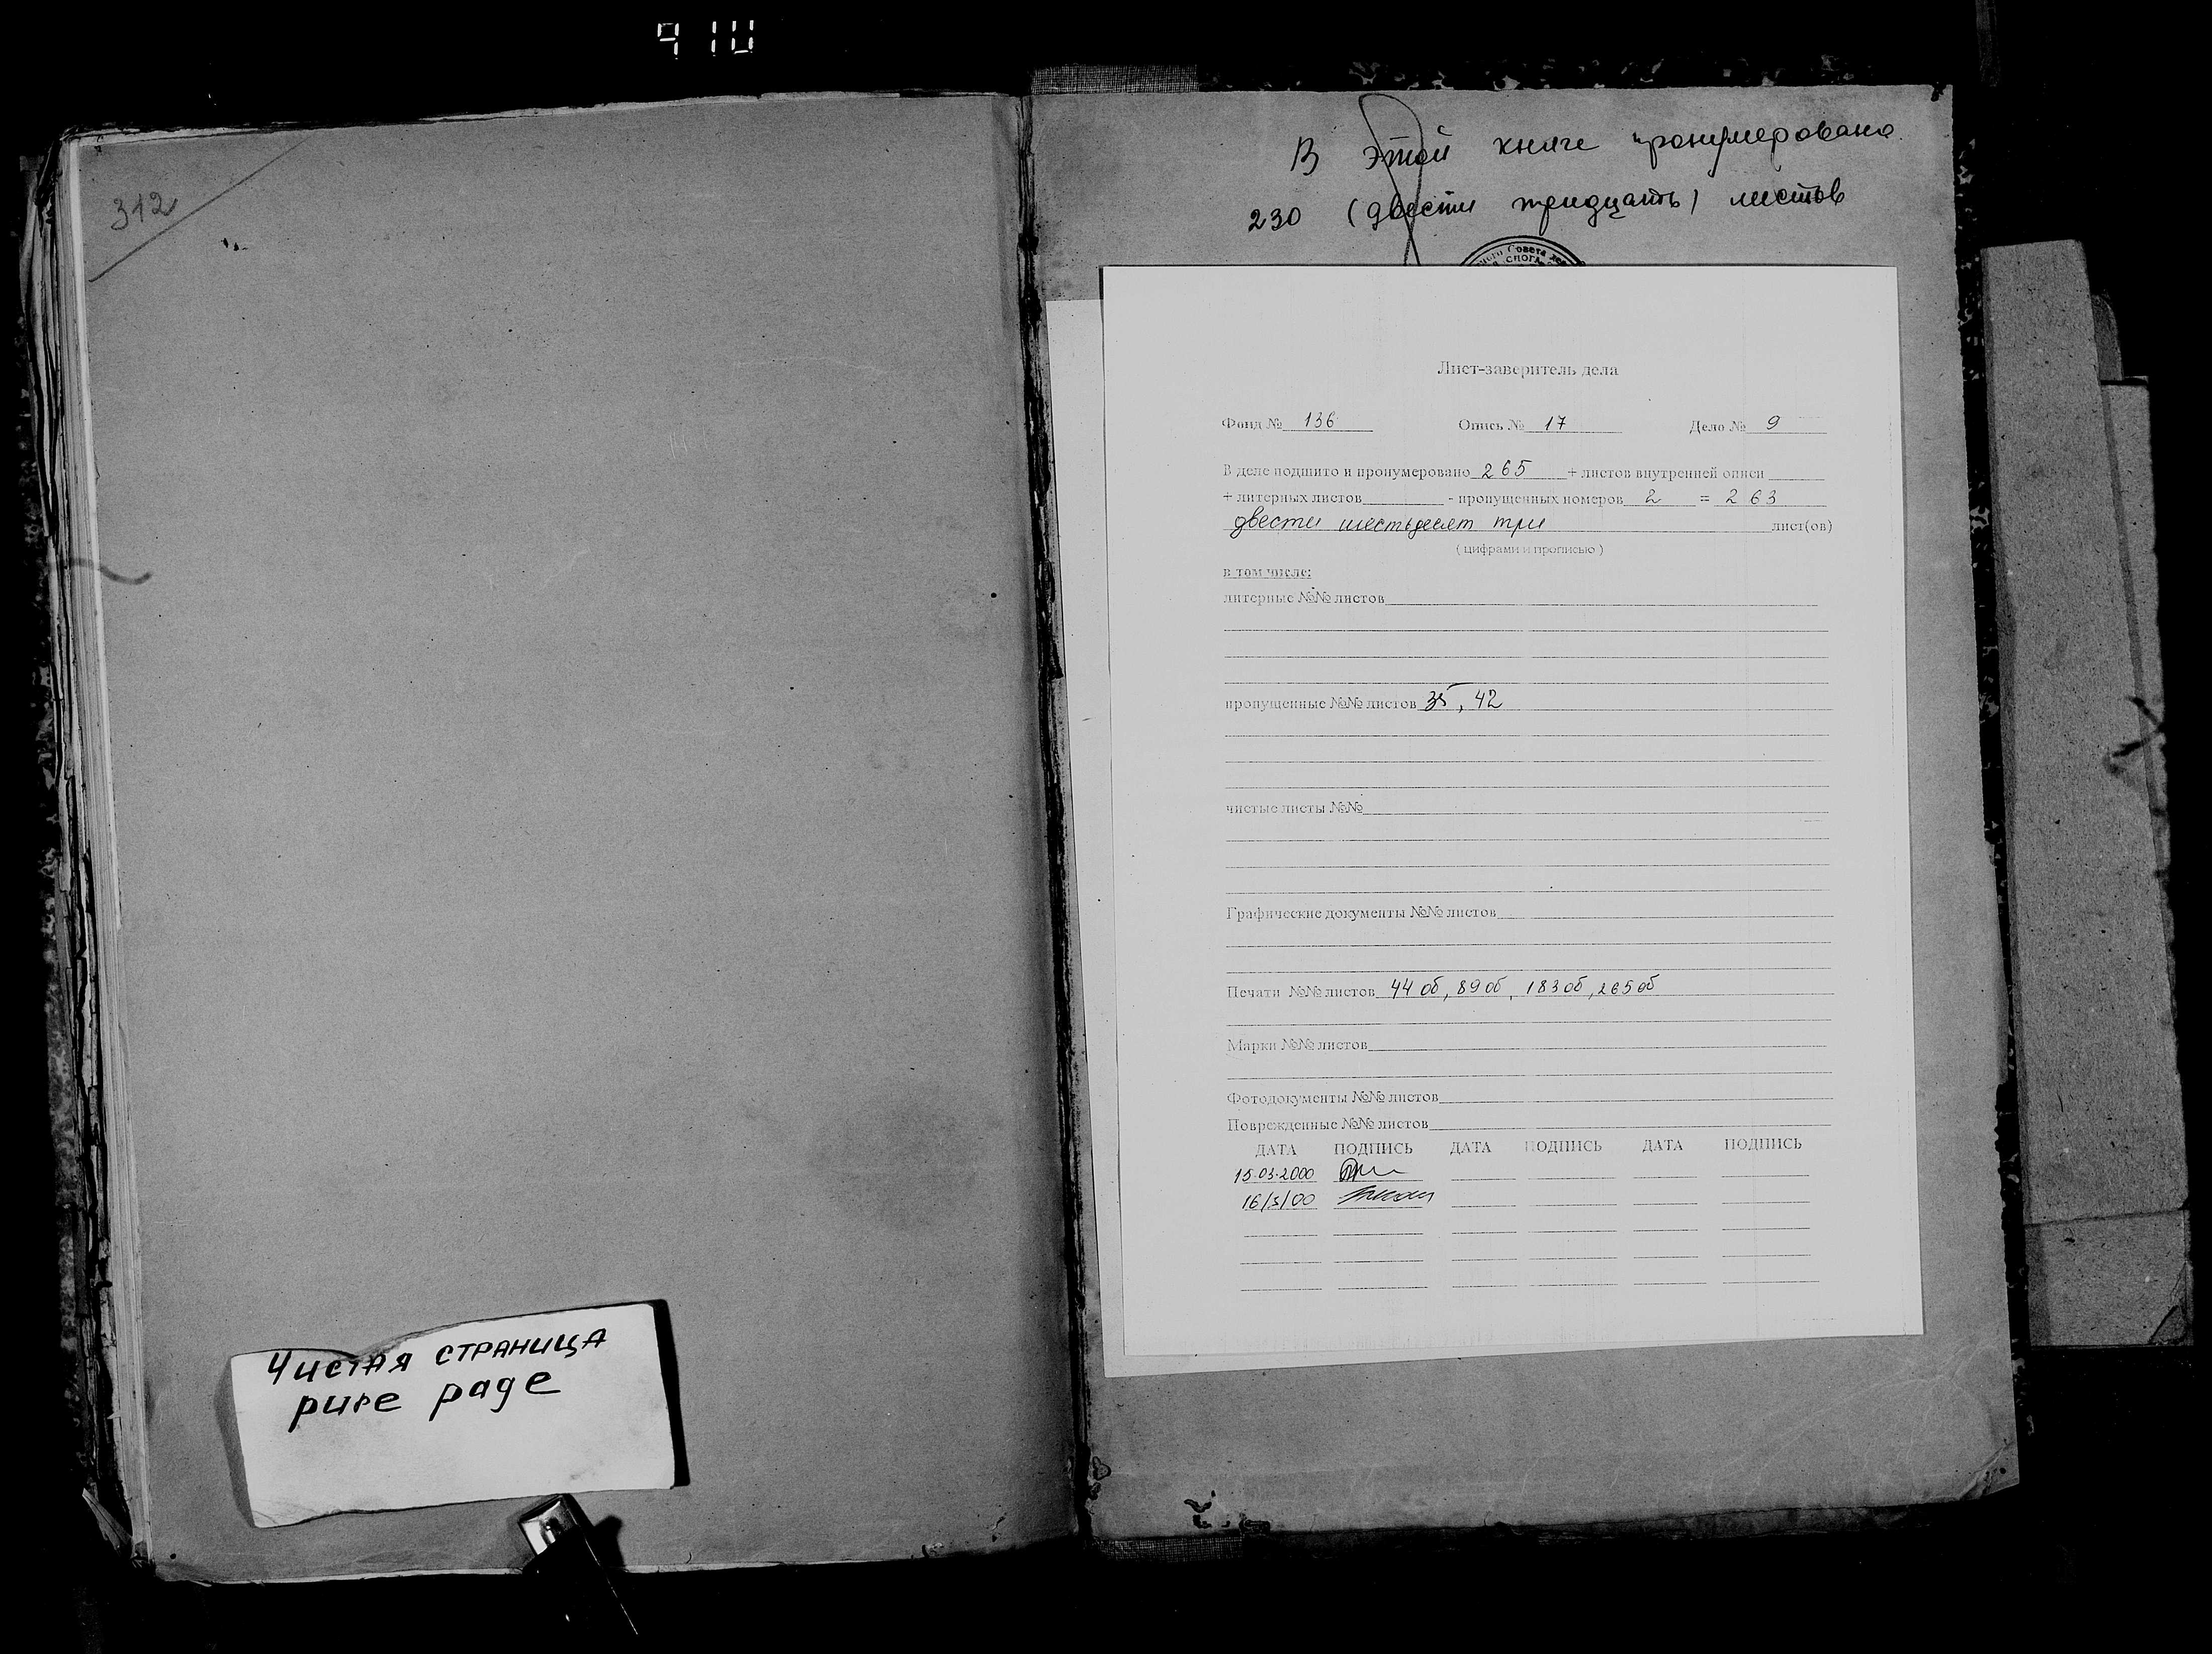 910
312
Чистая страница
pure page
В этой книге пронумеровано
230 (двести тридцать) листов
Совета
Лист-заверитель дела
Фонд № 136 Опись № 17 Дело № 9
В деле подшито и пронумеровано 265 + листов внутренней описи
+ литерных листов - пропущенных номеров 2 = 263
двести шестьдесят три лист(ов)
( цифрами и прописью )
в том числе:
литерные №№ листов
пропущенные №№ листов 35, 42
чистые листы №№
Графические документы №№ листов
Печати №№ листов 44 об, 89 об, 183 об, 265 об
Марки №№ листов
Фотодокументы №№ листов
Поврежденные №№ листов
ДАТА ПОДПИСЬ ДАТА ПОДПИСЬ ДАТА ПОДПИСЬ
15.03.2000
16/3/00